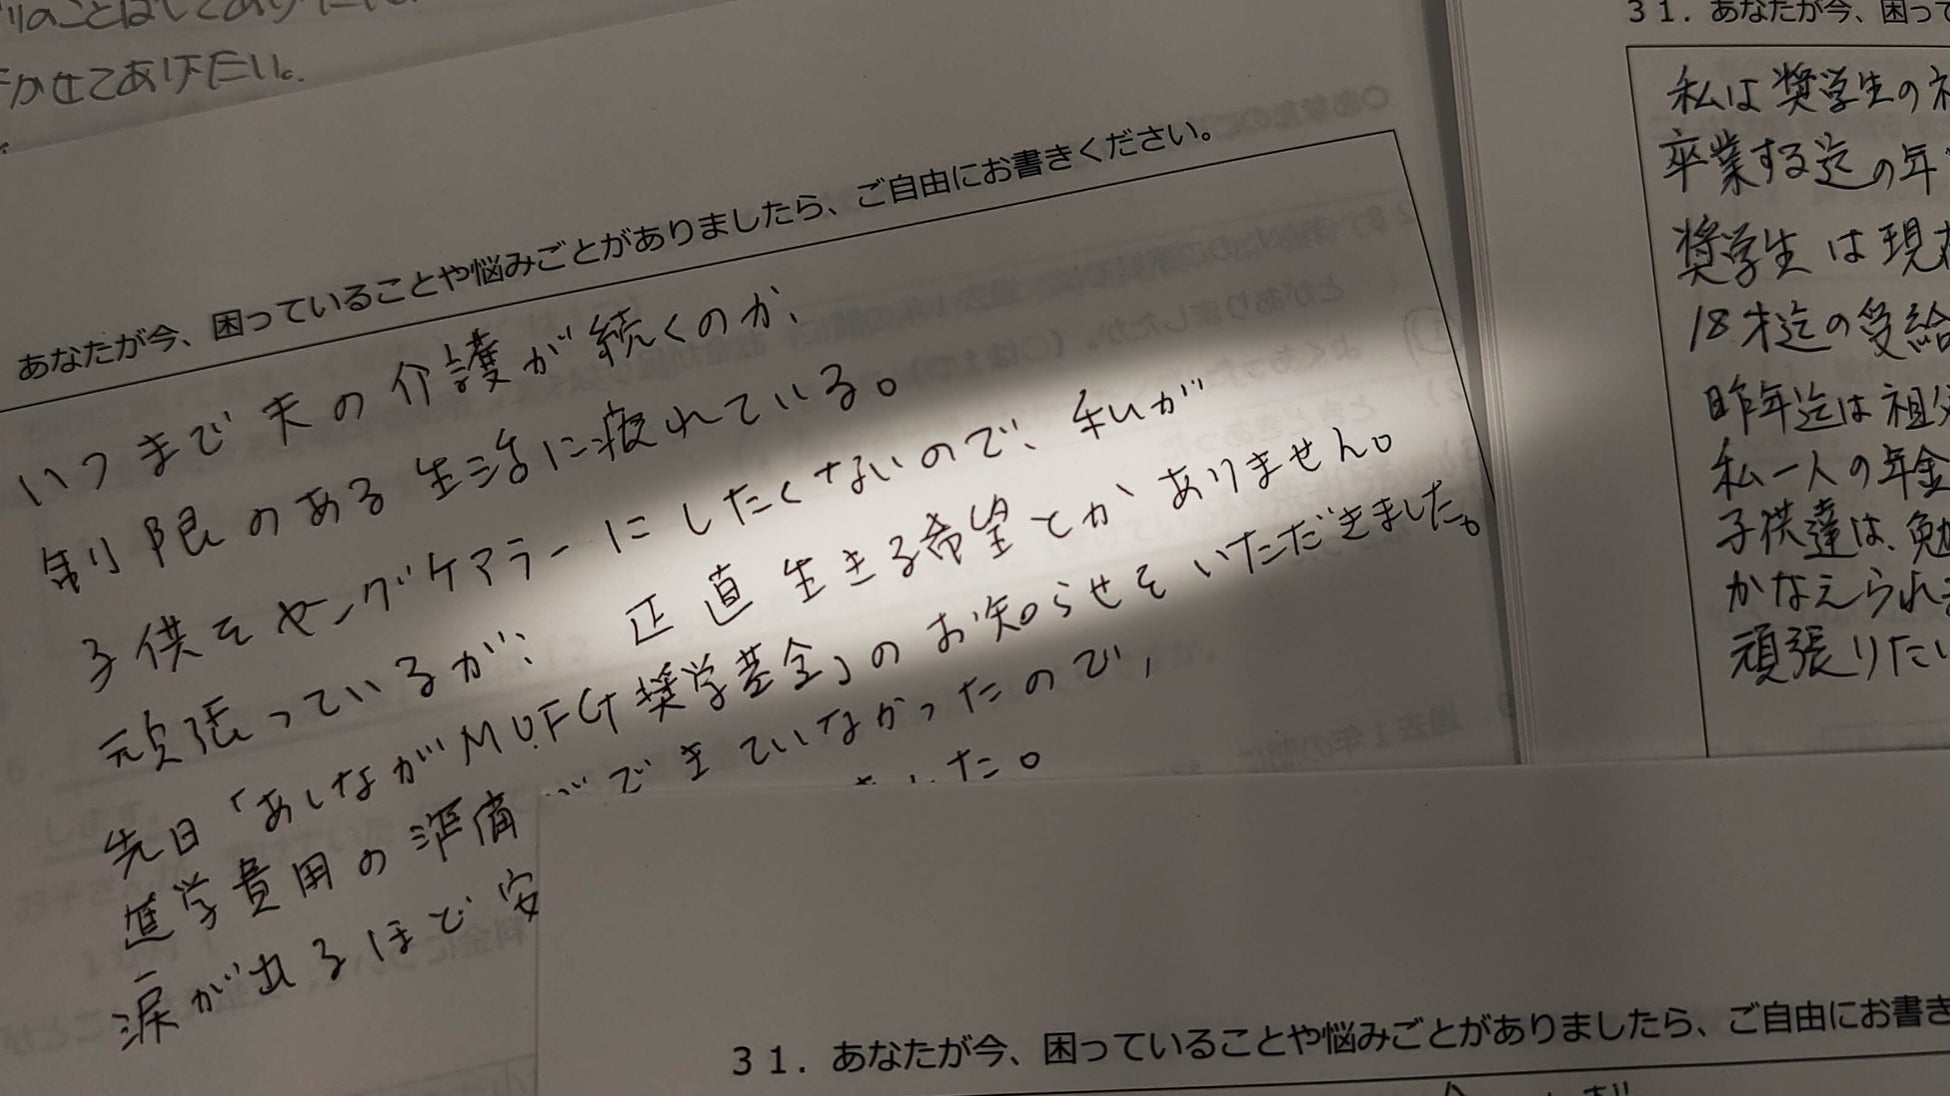 かせてあげたい。
あなたが今、困っていることや悩みごとがありましたら、ご自由にお書きください。
いつまで夫の介護が続くのか、
制限のある生活に疲れている。
子供をヤングケアラーにしたくないので、私が
頑張っているが、正直生きる希望とかありません。
先日「あしながMUFG奨学基金」のお知らせをいただきました。
進学費用の準備ができていなかったので、
涙が出るほど安
した。
31．あなたが今、困って
私は奨学生の
卒業する迄の年
奨学生は現
18才迄の受給
昨年迄は祖
私一人の年金
子供達は、勉
かなえられ
頑張りたい
31．あなたが今、困っていることや悩みごとがありましたら、ご自由にお書き